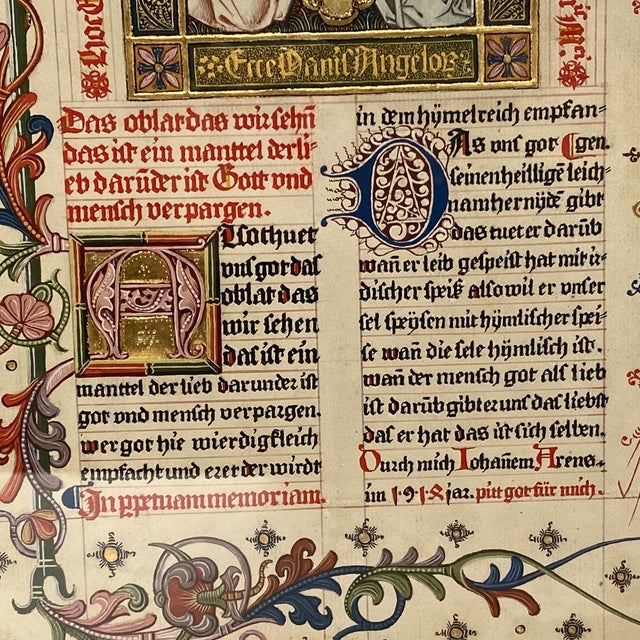 Ecce Panis Angelor
Das oblat das wir sehn
das ist ein manttel der li-
eb darunder ist Gott vnd
mensch verpargen.
Also thuet
vns got das
oblat das
wir sehen
das ist ein
manttel der lieb darunder ist
got vnd mensch verpargen.
wer got hie wierdigkleich
empfacht und eret der wirdt
In ppetuam memoriam.
in dem hÿmelreich empfan-
gen.
DAs vns got
seinen heilligē leich-
nam hernÿdē gibt
das tuet er darūb
wañ er leib gespeist hat mit ir-
discher speiß also wil er vnser
sel speÿsen mit hÿmlischer spei-
se wañ die sele hÿmlisch ist.
wañ der mensch got als lieb
ist darūb gibt er uns das liebst
das er hat das ist sich selben.
Durch mich Iohañem Arens.
im 1·9·1·8 jar. pitt got für mich.